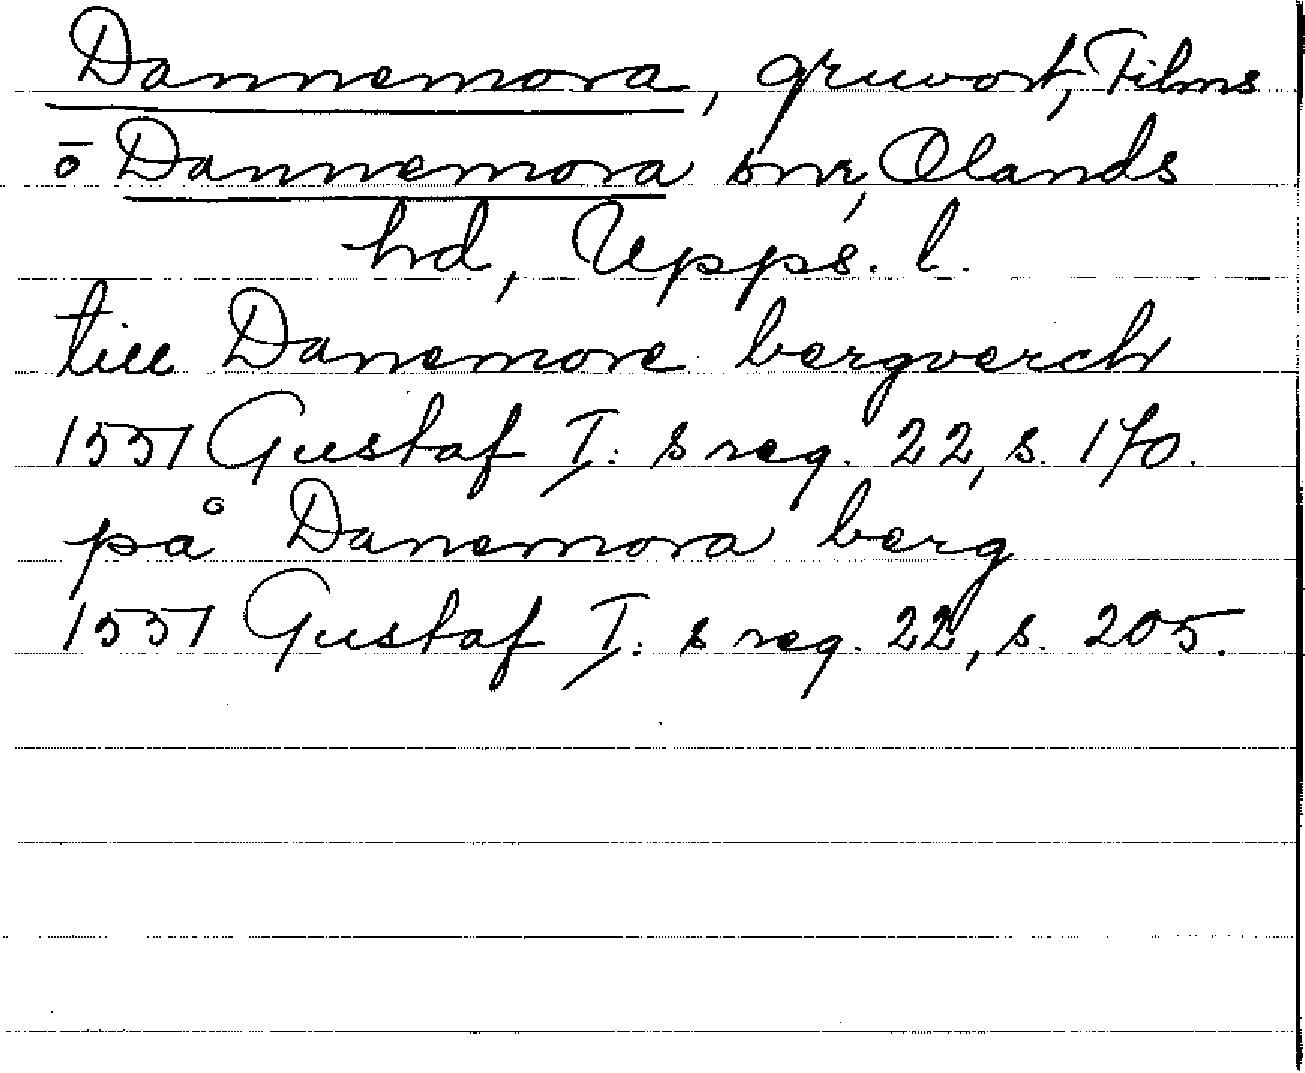 Dannemora, gruvort, Films
ō Dannemora snr, Olands
hd, Upps. l.
till Danemore bergverch
1551 Gustaf I: s reg. 22, s. 170.
på Danemora berg
1551 Gustaf I: s reg. 22, s. 205.